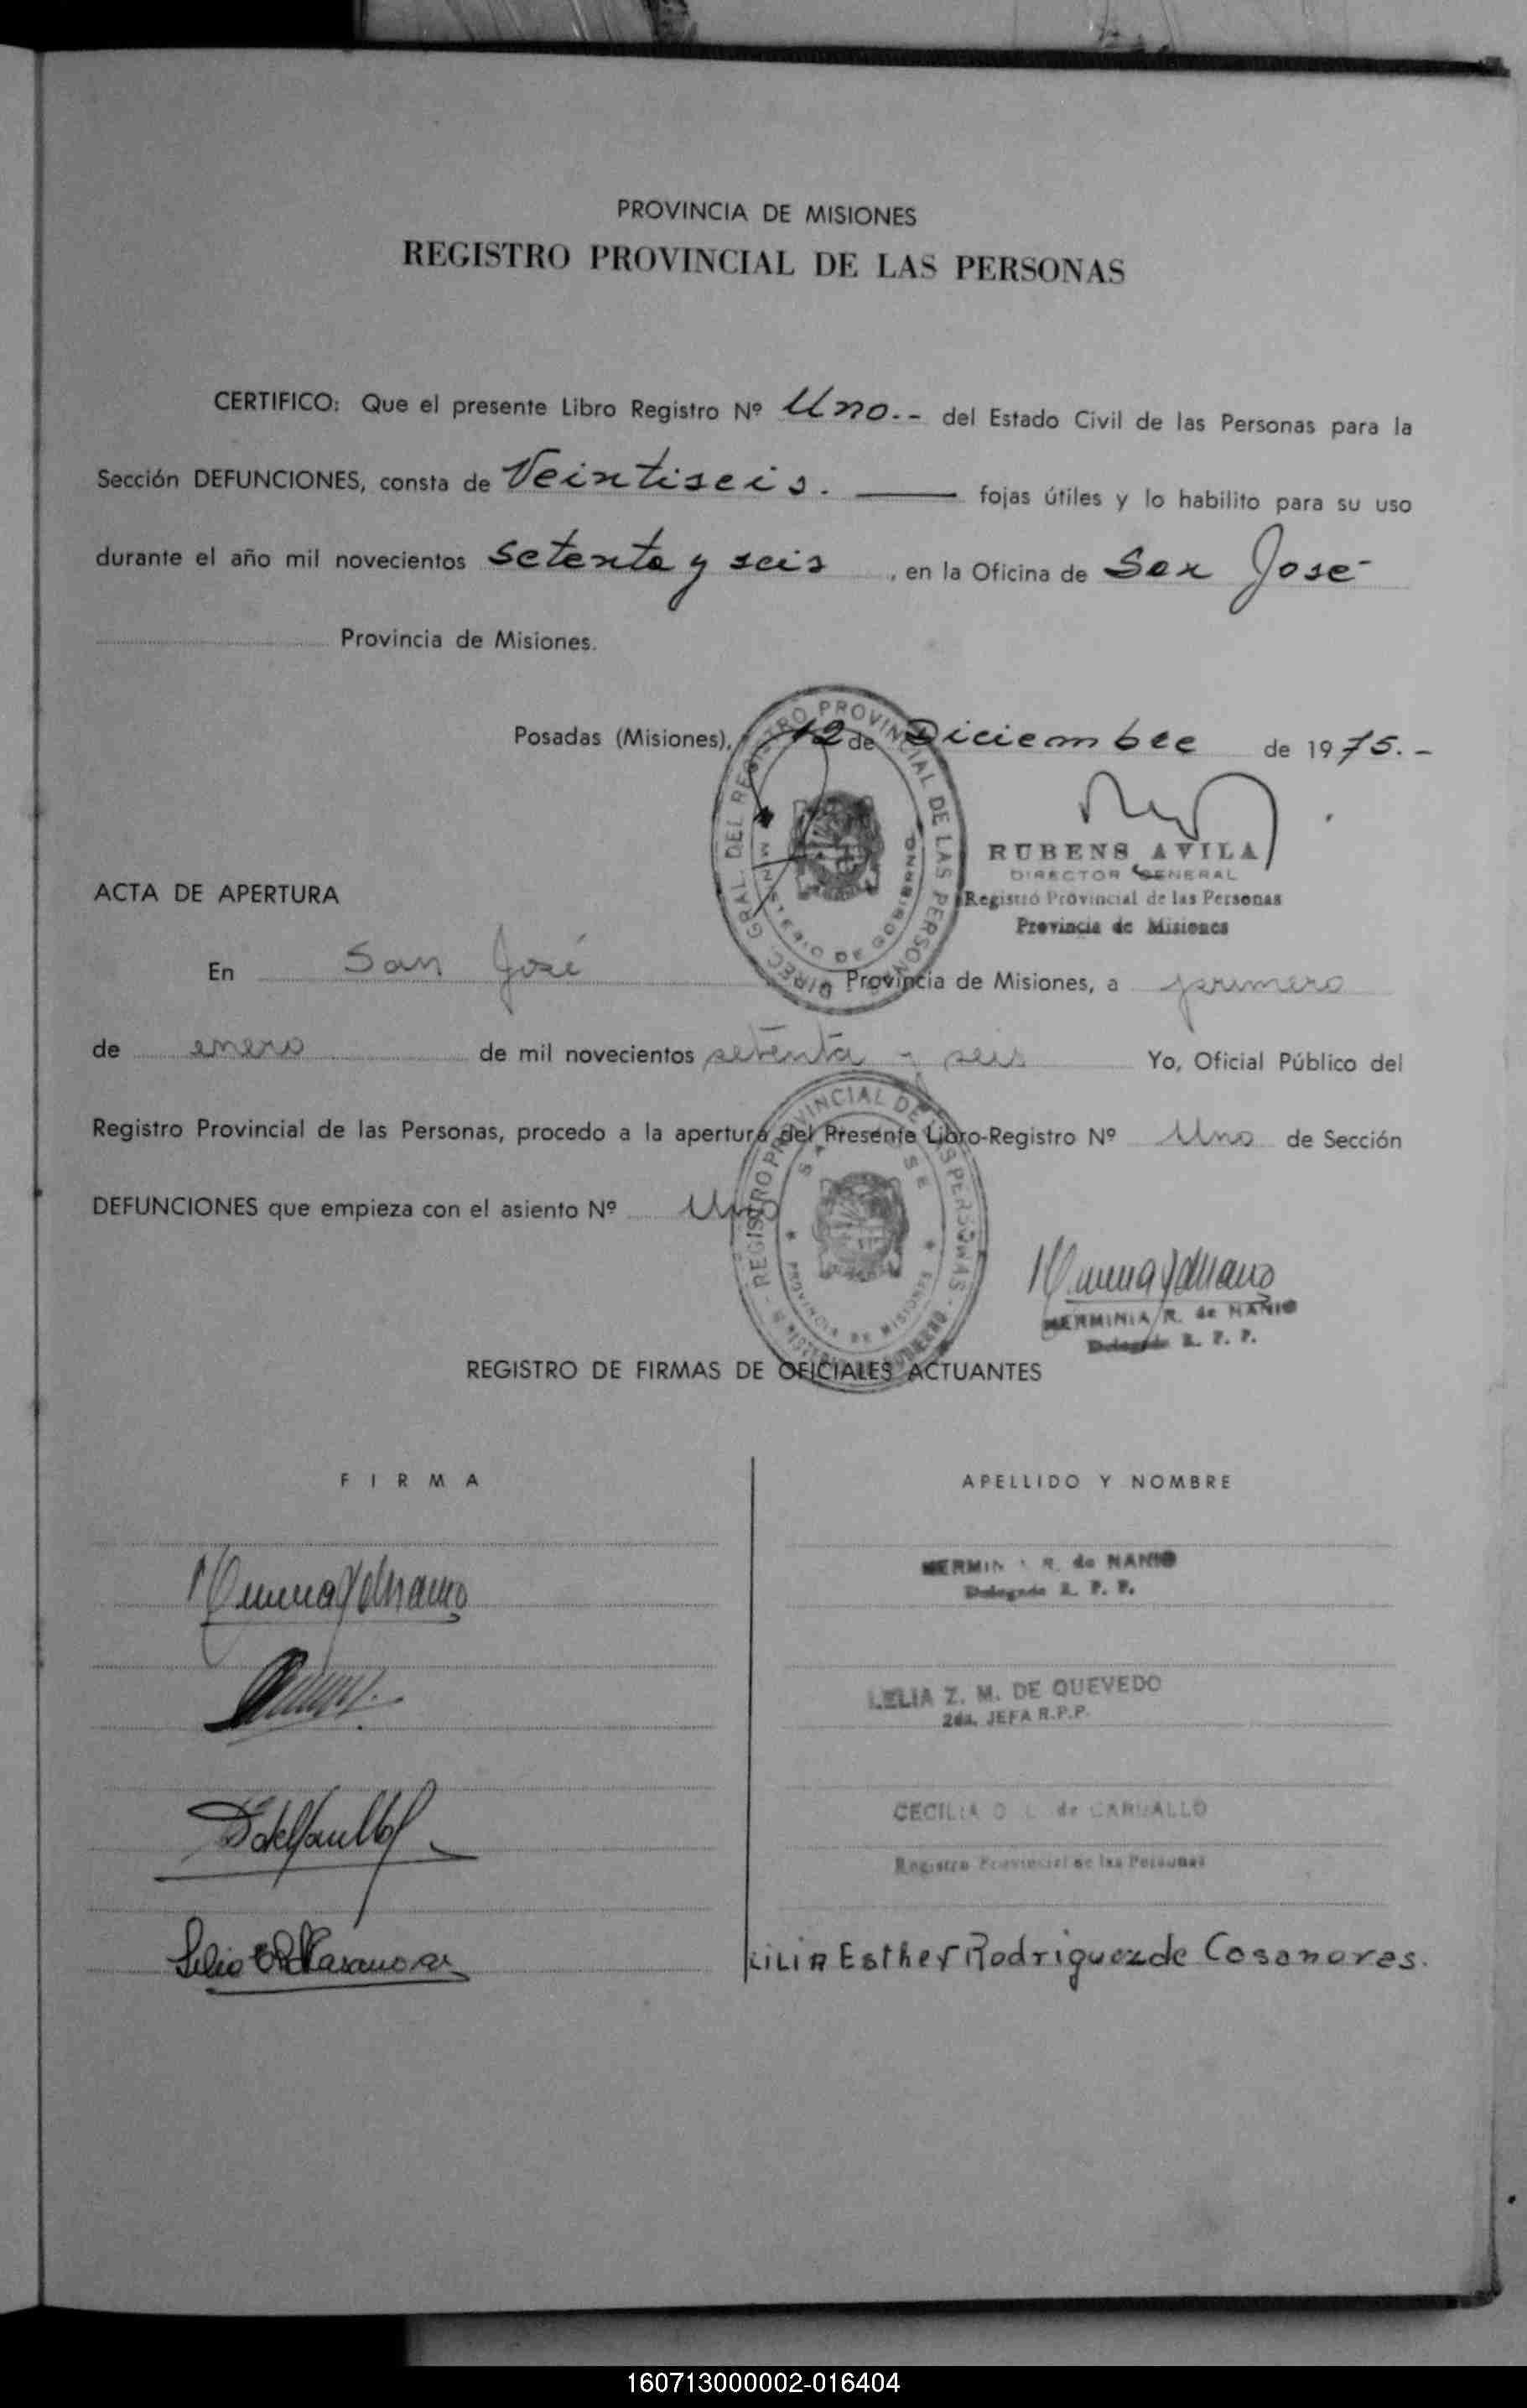 PROVINCIA DE MISIONES
REGISTRO PROVINCIAL DE LAS PERSONAS
CERTIFICO: Que el presente Libro Registro Nº Uno.- del Estado Civil de las Personas para la
Sección DEFUNCIONES, consta de Veintiseis. fojas útiles y lo habilito para su uso
durante el año mil novecientos setenta y seis, en la Oficina de San José
Provincia de Misiones.
Posadas (Misiones), 12 de Diciembre de 1975.-
RUBENS AVILA
DIRECTOR GENERAL
Registro Provincial de las Personas
Provincia de Misiones
DIREC. GRAL. DEL REGISTRO PROVINCIAL DE LAS PERSONAS
MINISTERIO DE GOBIERNO
ACTA DE APERTURA
En San José Provincia de Misiones, a primero
de enero de mil novecientos setenta y seis Yo, Oficial Público del
Registro Provincial de las Personas, procedo a la apertura del Presente Libro-Registro Nº Uno de Sección
DEFUNCIONES que empieza con el asiento Nº Uno
REGISTRO PROVINCIAL DE LAS PERSONAS
PROVINCIA DE MISIONES
HERMINIA R. de NANIO
Delegada R. P. P.
REGISTRO DE FIRMAS DE OFICIALES ACTUANTES
FIRMA APELLIDO Y NOMBRE
R. de NANIO
Delegada R. P. P.
LELIA Z. M. DE QUEVEDO
2da. JEFA R.P.P.
CECILIA de CARVALLO
Registro Provincial de las Personas
LiLiA Esther Rodriguez de Casanovas.
160713000002-016404